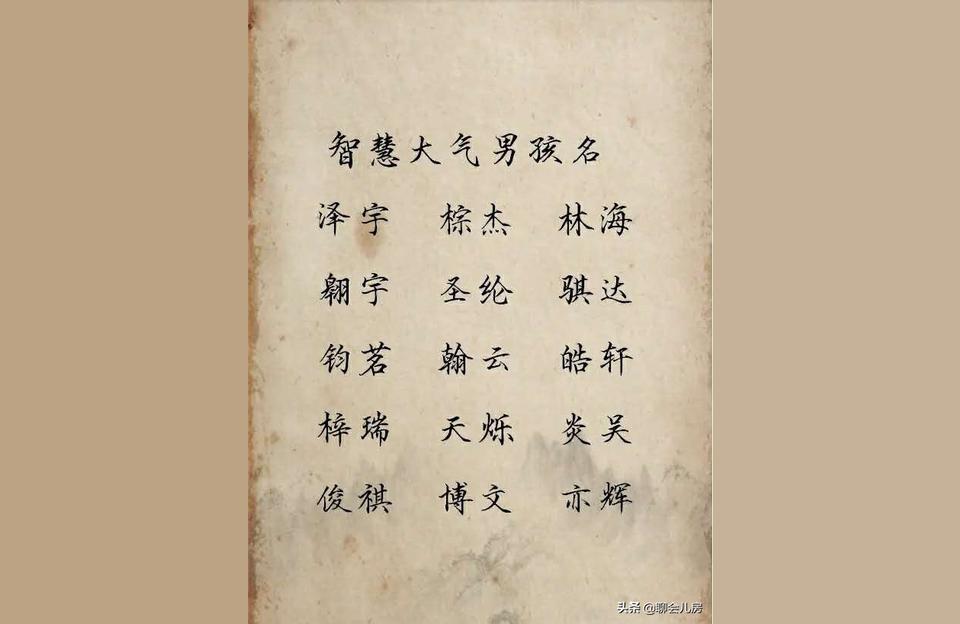 智慧大气男孩名
泽宇 棕杰 林海
翱宇 圣纶 骐达
钧茗 翰云 皓轩
梓瑞 天烁 炎吴
俊祺 博文 亦辉
头条 @聊会儿房